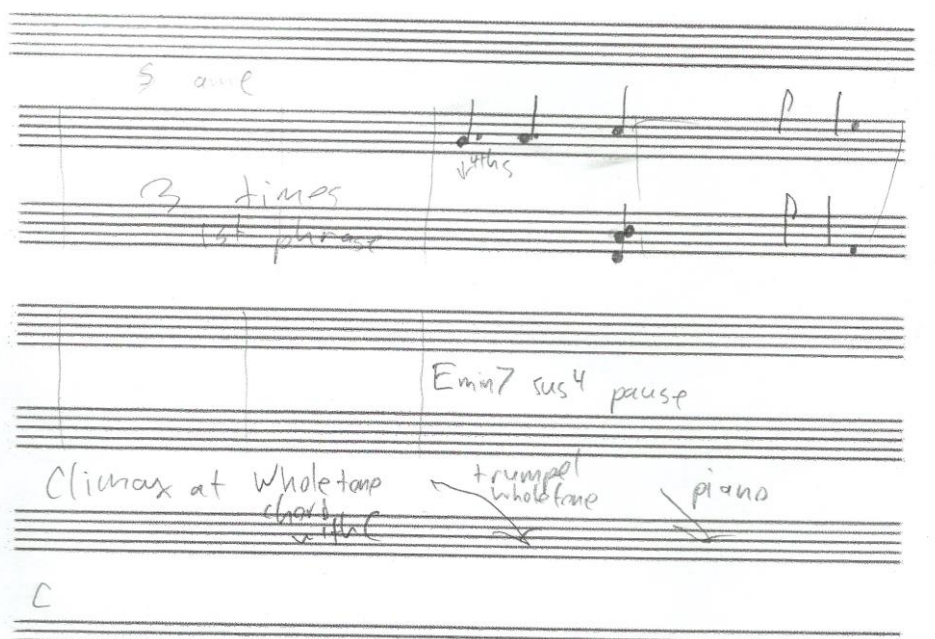 Same
4ths
3 times
1st phrase
Emin7 sus4 pause
Climax at Wholetone
chord
with C
trumpet
wholetone
piano
C